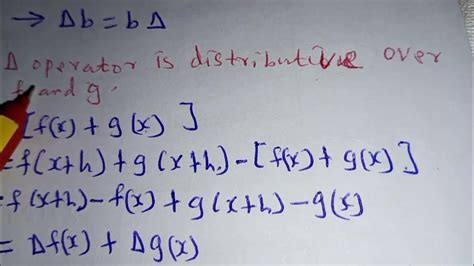 → Δb = bΔ
Δ operator is distributive over
f and g.
[f(x) + g(x)]
= f(x+h) + g(x+h) - [f(x) + g(x)]
= f(x+h) - f(x) + g(x+h) - g(x)
= Δf(x) + Δg(x)